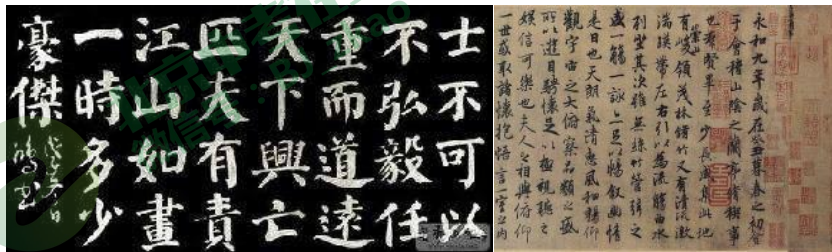 士不可以
不弘毅任
重而道遠
天下興亡
匹夫有責
江山如畫
一時多少
豪傑
永和九年歲在癸丑暮春之初會
于會稽山陰之蘭亭脩稧事
也羣賢畢至少長咸集此地
有崇山峻領茂林脩竹又有清流激
湍暎帶左右引以為流觴曲水
列坐其次雖無絲竹管弦之
盛一觴一詠亦足以暢敘幽情
是日也天朗氣清惠風和暢仰
觀宇宙之大俯察品類之盛
所以遊目騁懷足以極視聽之
娛信可樂也夫人之相與俯仰
一世或取諸懷抱悟言一室之內